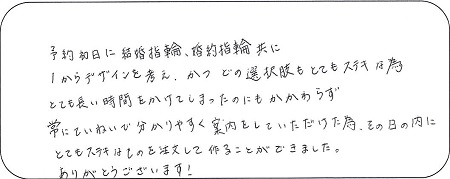 予約初日に結婚指輪、婚約指輪共に
1からデザインを考え、かつどの選択肢もとてもステキな為
とても長い時間をかけてしまったのにもかかわらず
常にていねいで分かりやすく案内をしていただけた為、その日の内に
とてもステキなものを注文して作ることができました。
ありがとうございます!